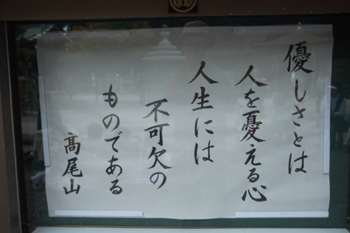 優しさとは
人を憂える心
人生には
不可欠の
ものである
高尾山